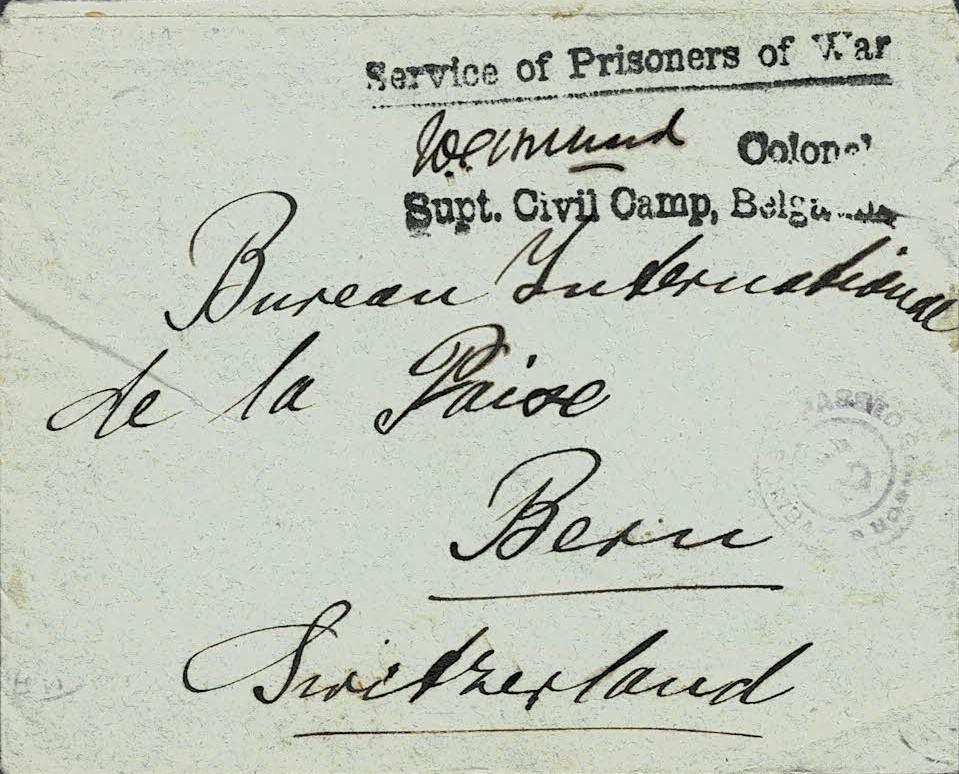 Service of Prisoners of War
Colonel
Supt. Civil Camp, Belgaum
Bureau Internationale
de la Paise
Bern
Switzerland
PASSED CENSOR